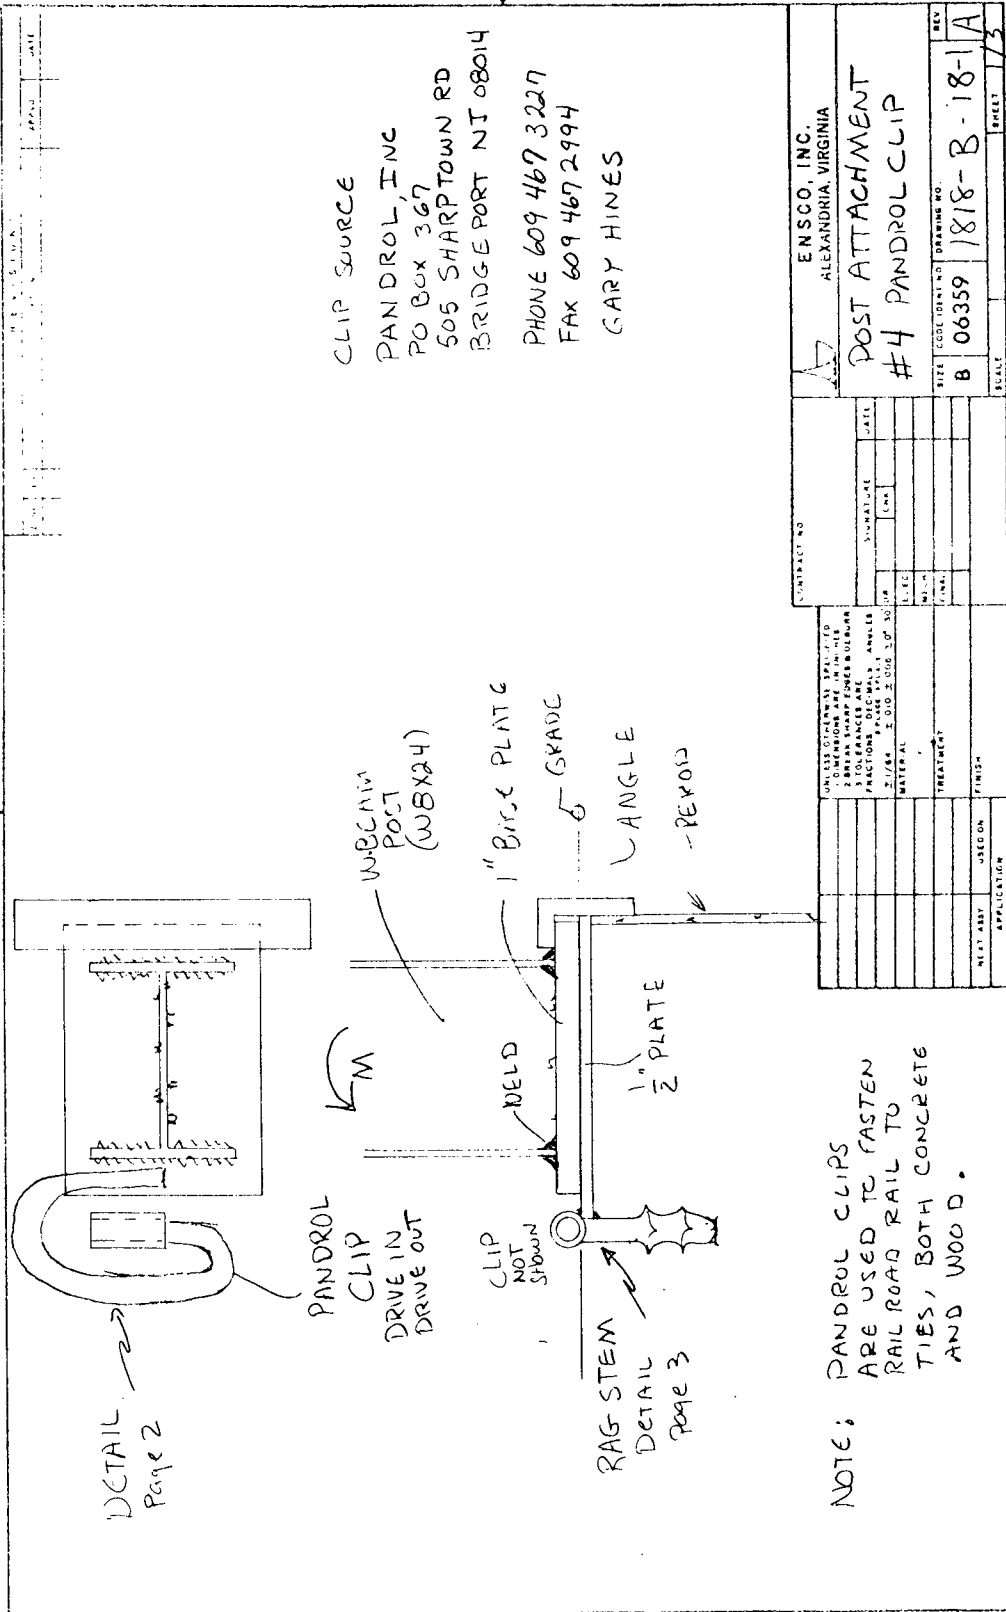 DETAIL
Page 2
PANDROL
CLIP
DRIVE IN
DRIVE OUT
M
POST
(W8X24)
WELD
1" PLATE
CLIP
NOT
SHOWN
GRADE
ANGLE
1/2" PLATE
RAG STEM
DETAIL
Page 3
NOTE: PANDROL CLIPS
ARE USED TO FASTEN
RAIL ROAD RAIL TO
TIES, BOTH CONCRETE
AND WOOD.
CLIP SOURCE
PANDROL, INC
PO BOX 367
505 SHARPTOWN RD
BRIDGEPORT NJ 08014
PHONE 609 467 3227
FAX 609 467 2994
GARY HINES
UNLESS OTHERWISE SPECIFIED
DIMENSIONS ARE IN INCHES
2 BREAK SHARP EDGES & DEBURR
3 TOLERANCES ARE
FRACTIONS DECIMALS ANGLES
MATERIAL
TREATMENT
FINISH
NEXT ASSY USED ON
APPLICATION
CONTRACT NO
SIGNATURE DATE
ENSCO, INC.
ALEXANDRIA, VIRGINIA
POST ATTACHMENT
#4 PANDROL CLIP
SIZE CODE IDENT NO DRAWING NO. REV
B 06359 1818-B-18-1 A
SCALE SHEET 1/3